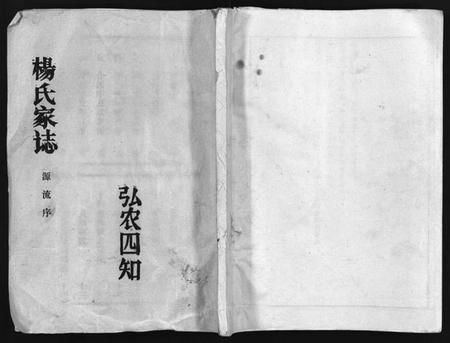 楊氏家誌
源流序
弘农四知